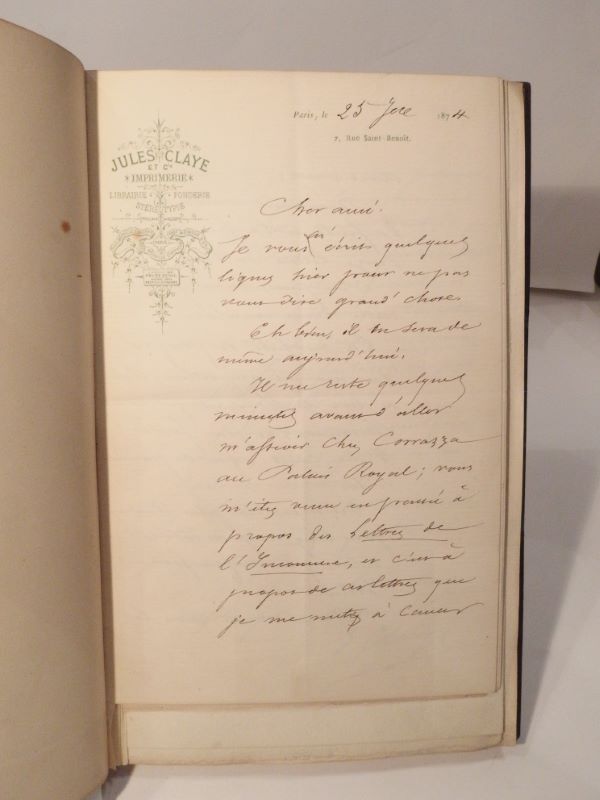 JULES CLAYE
ET Cie
*IMPRIMERIE*
LIBRAIRIE FONDERIE
STÉRÉOTYPIE
Paris, le 25 1874
7, Rue Saint-Benoît.
Cher ami.
Je vous ai écrit quelques
lignes hier pour ne pas
vous dire grand' chose.
Eh bien, il en sera de
même aujourd'hui.
Il me reste quelques
minutes avant d'aller
m'asseoir chez Corrazza
au Palais Royal; vous
m'êtes venu en pensée à
propos des Lettres de
l'Inconnue, et c'est à
propos de ces lettres que
je me mets à causer